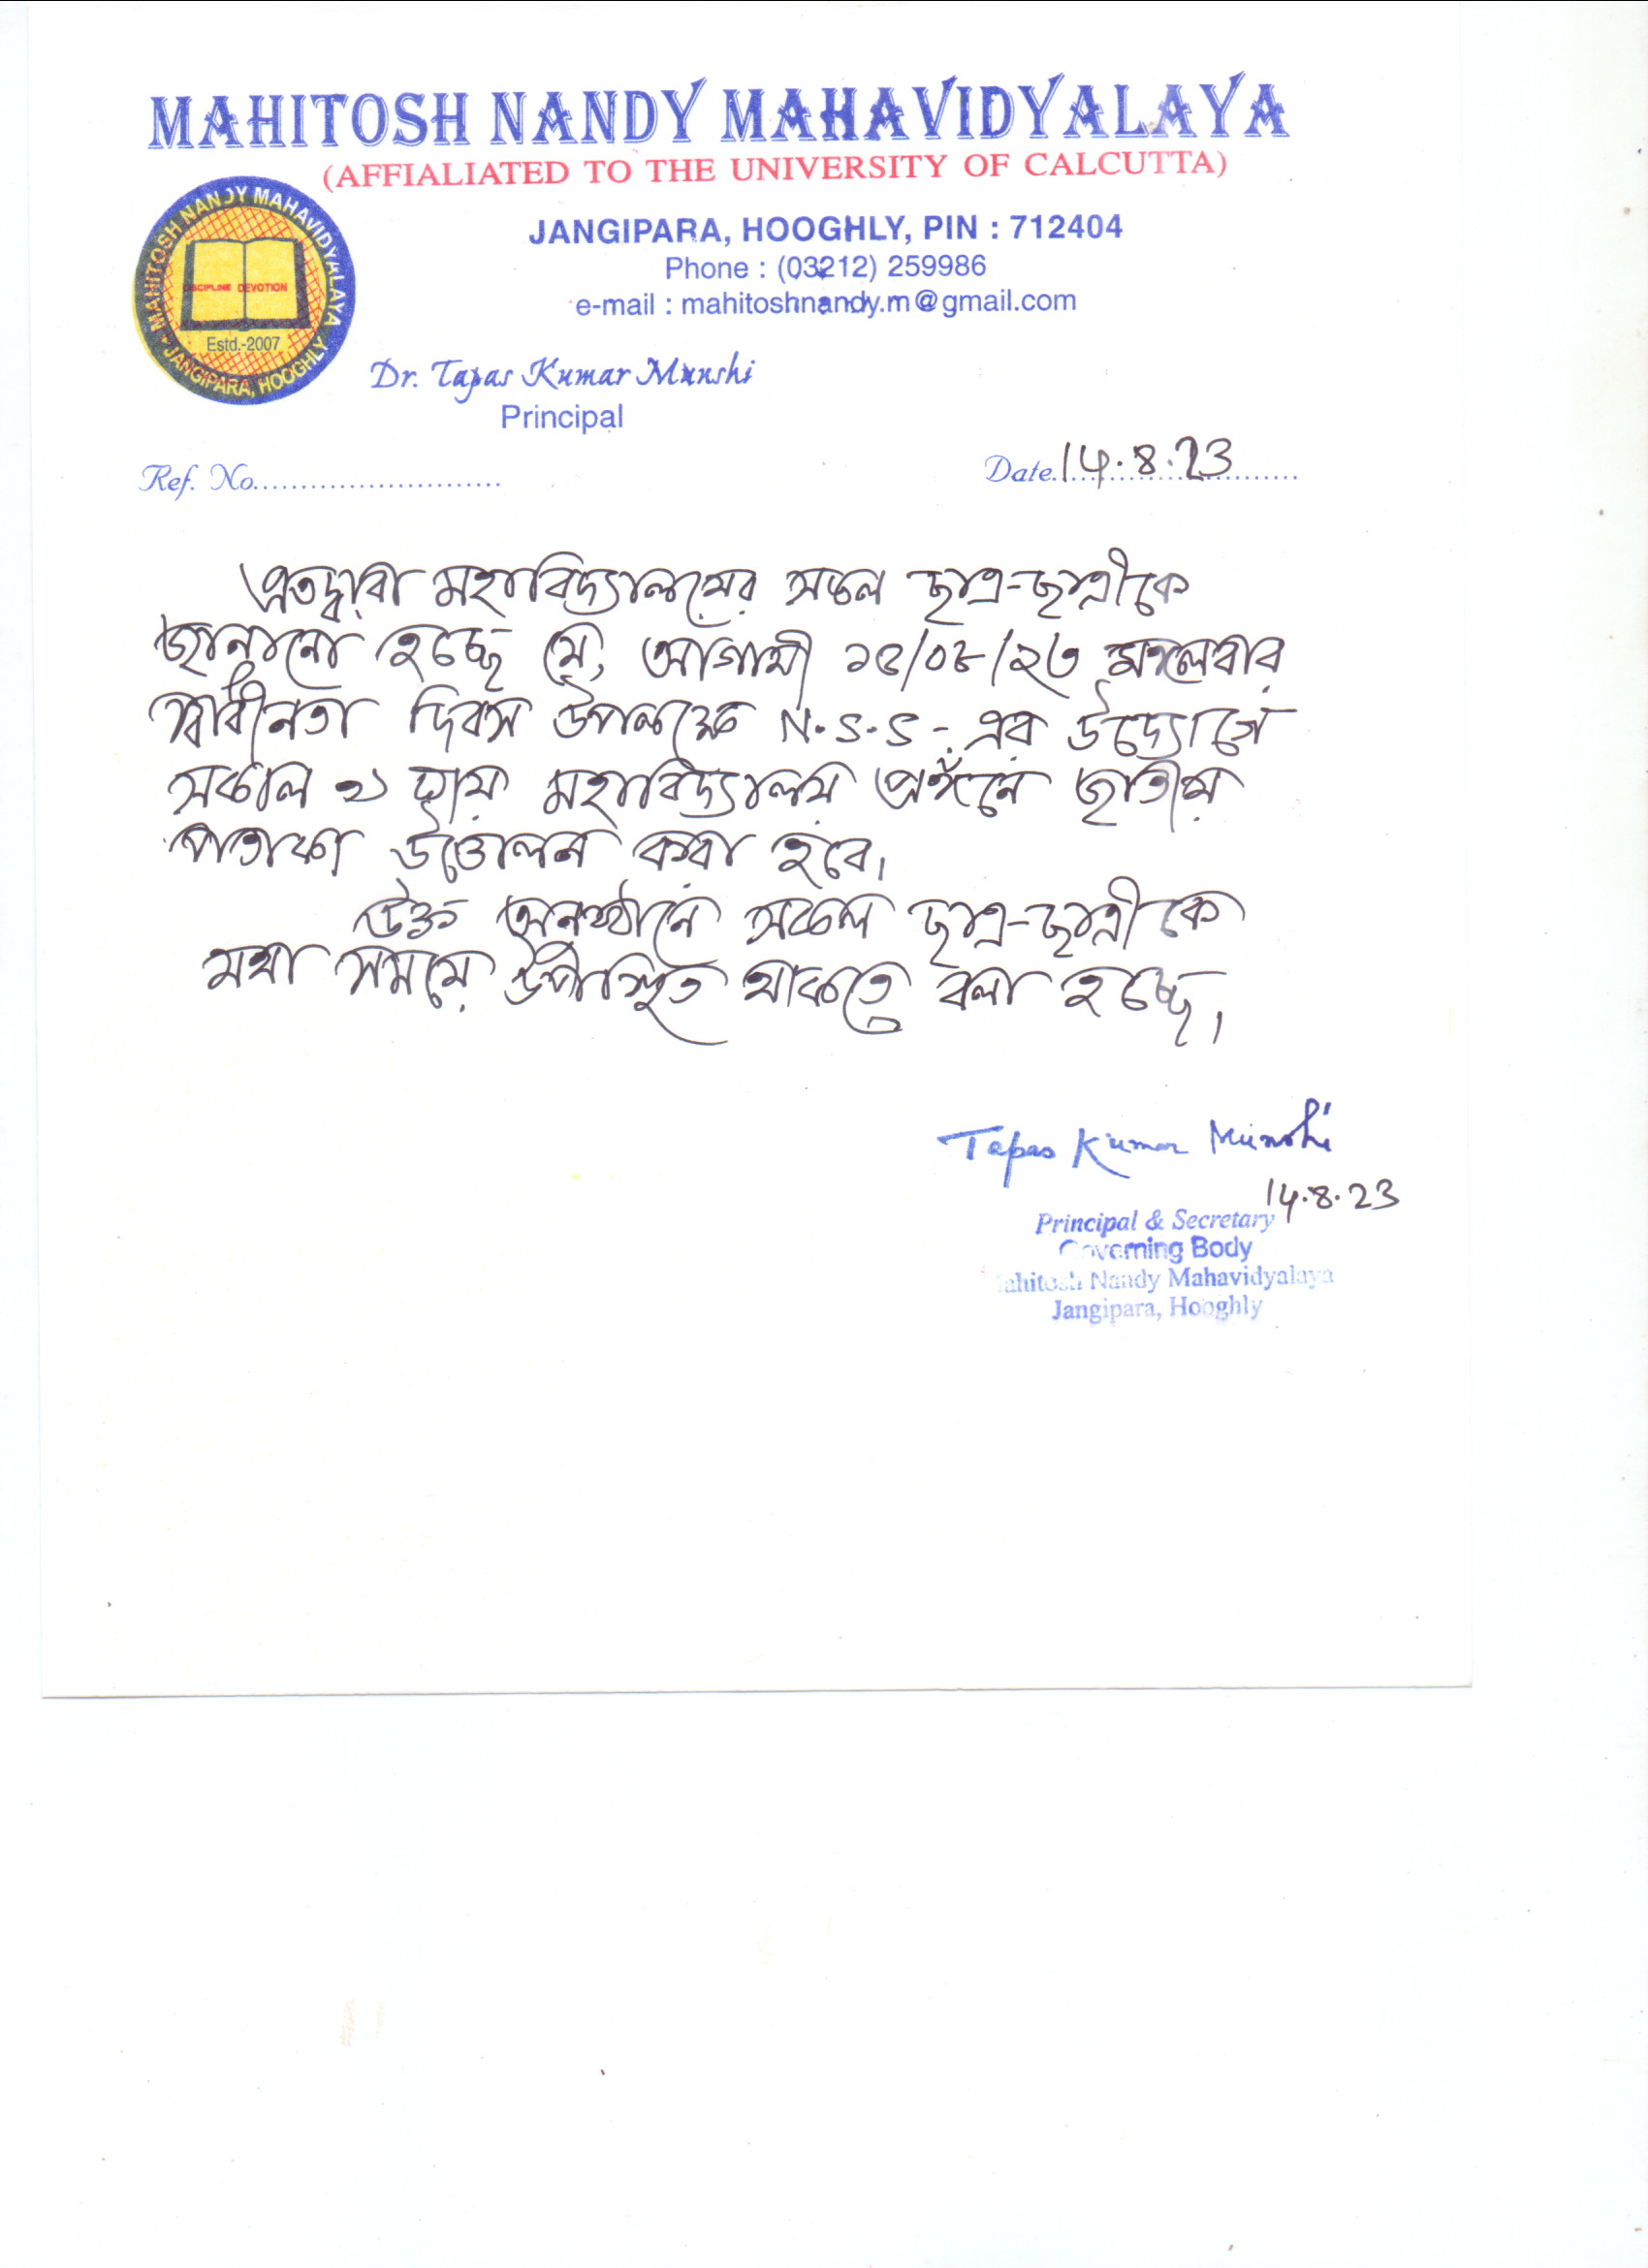 MAHITOSH NANDY MAHAVIDYALAYA
(AFFIALIATED TO THE UNIVERSITY OF CALCUTTA)
MAHITOSH NANDY MAHAVIDYALAYA
DISCIPLINE DEVOTION
Estd.-2007
JANGIPARA, HOOGHLY
JANGIPARA, HOOGHLY, PIN : 712404
Phone : (03212) 259986
e-mail : mahitoshnandy.m@gmail.com
Dr. Tapas Kumar Munshi
Principal
Ref. No..........................
Date. 14.8.23
এতদ্বারা মহাবিদ্যালয়ের সকল ছাত্র-ছাত্রীকে
জানানো হচ্ছে যে, আগামী ১৫/০৮/২৩ মঙ্গলবার
স্বাধীনতা দিবস উপলক্ষে N.S.S-এর উদ্যোগে
সকাল টায় মহাবিদ্যালয় প্রাঙ্গনে জাতীয়
পতাকা উত্তোলন করা হবে।
উক্ত অনুষ্ঠানে সকল ছাত্র-ছাত্রীকে
যথা সময়ে উপস্থিত থাকতে বলা হচ্ছে।
Tapas Kumar Munshi
14.8.23
Principal & Secretary
Governing Body
Mahitosh Nandy Mahavidyalaya
Jangipara, Hooghly